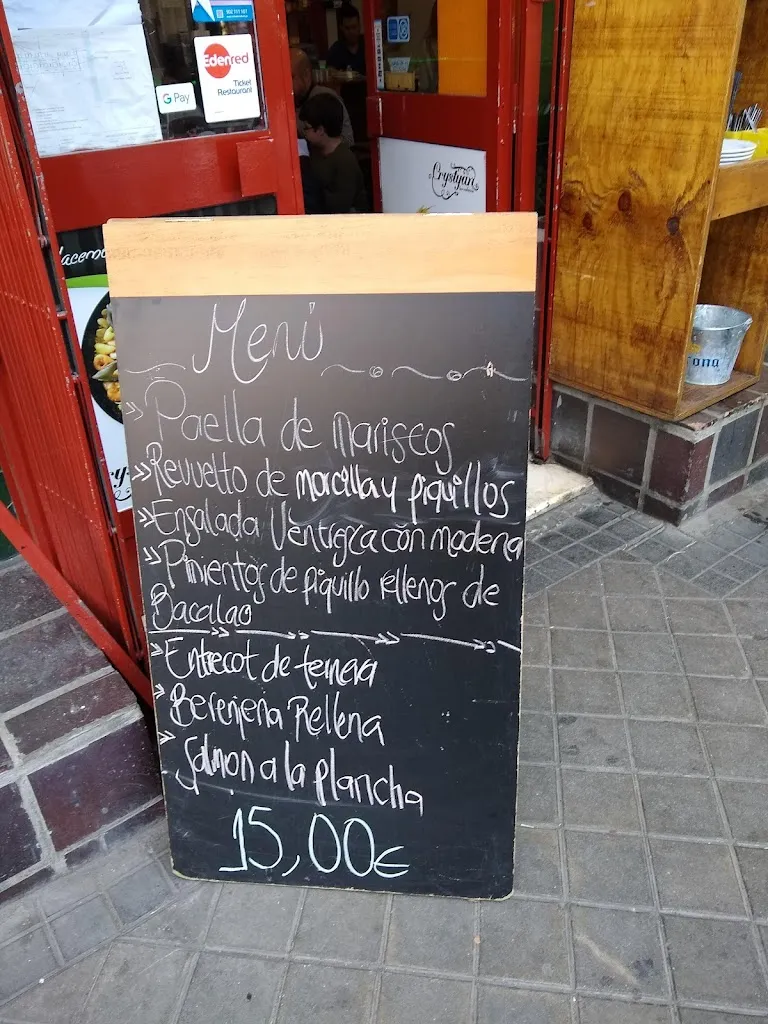 902 117 107
Edenred
Ticket
Restaurant
G Pay
Crystyan
Menú
Paella de mariscos
Revuelto de morcilla y piquillos
Ensalada Ventresca con modena
Pimientos de piquillo rellenos de
Bacalao
Entrecot de ternera
Berenjena Rellena
Salmon a la plancha
15,00€